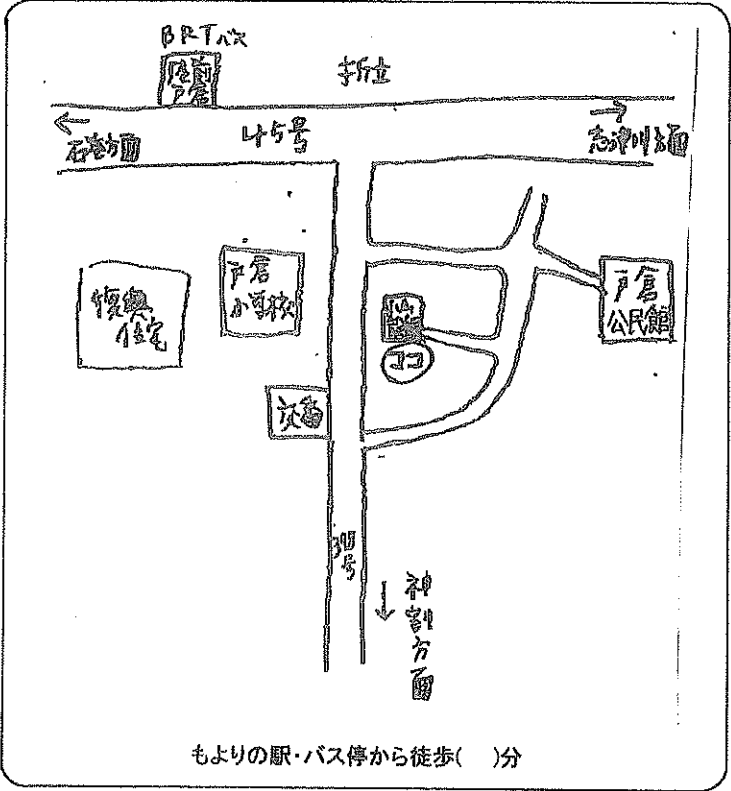 BRTバス
陸前
戸倉
折立
←
石巻方面
45号
→
志津川方面
復興
住宅
戸倉
小学校
ココ
戸倉
公民館
交番
398
号
↓
神
割
方
面
もよりの駅・バス停から徒歩(　)分